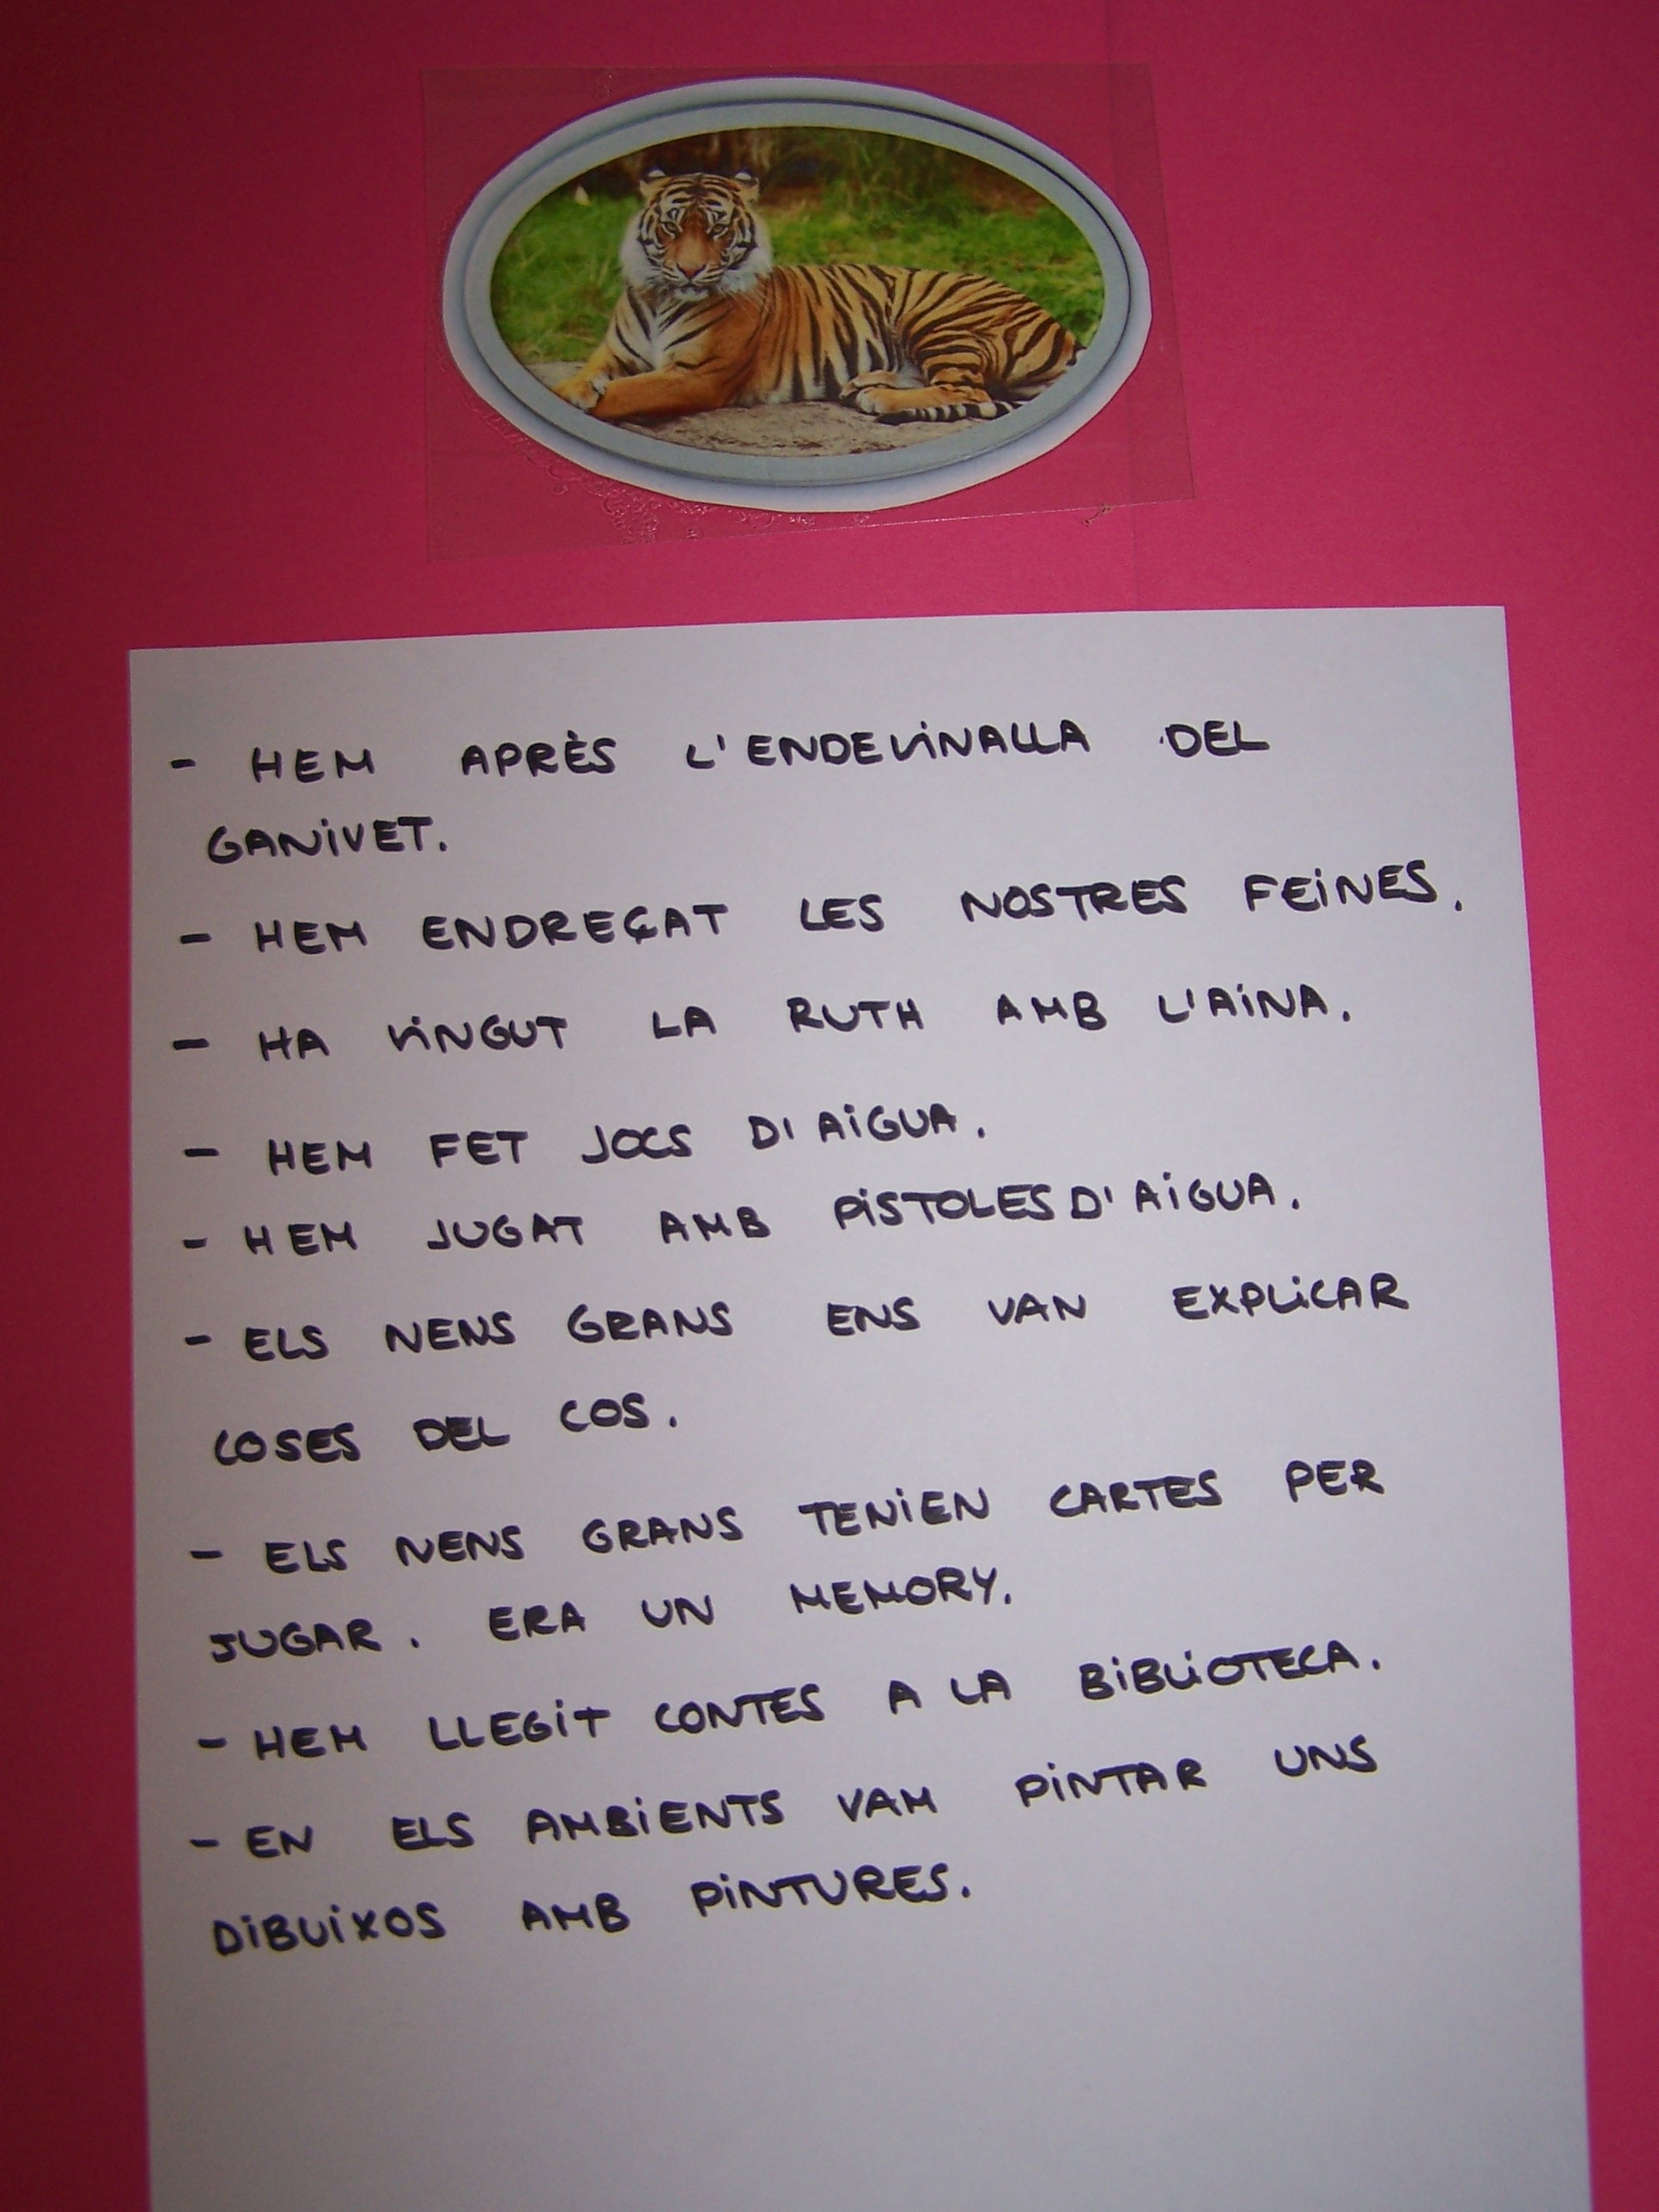 - HEM APRÈS L'ENDEVINALLA DEL
GANIVET.
- HEM ENDREÇAT LES NOSTRES FEINES.
- HA VINGUT LA RUTH AMB L'AINA.
- HEM FET JOCS D'AIGUA.
- HEM JUGAT AMB PISTOLES D'AIGUA.
- ELS NENS GRANS ENS VAN EXPLICAR
COSES DEL COS.
- ELS NENS GRANS TENIEN CARTES PER
JUGAR. ERA UN MEMORY.
- HEM LLEGIT CONTES A LA BIBLIOTECA.
- EN ELS AMBIENTS VAM PINTAR UNS
DIBUIXOS AMB PINTURES.